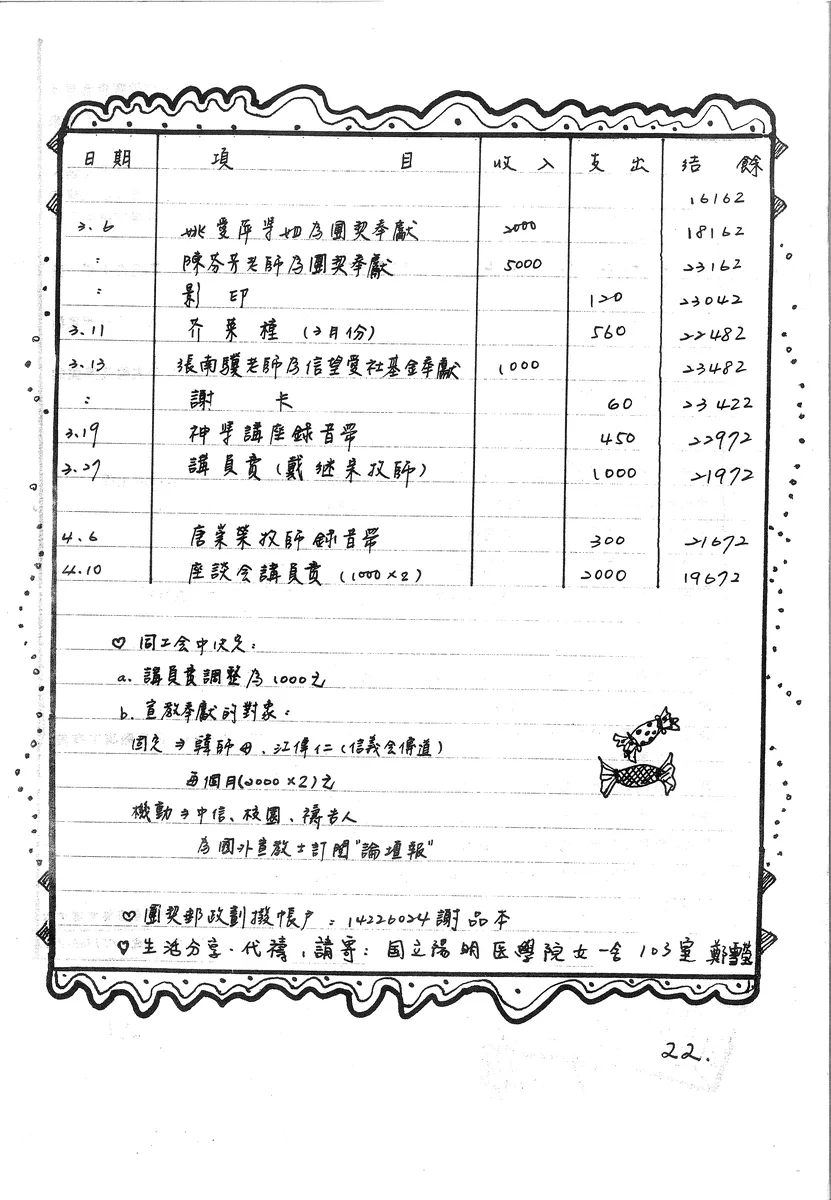 日期 項 目 收入 支出 結餘
16162
3.6 姚愛萍學姐為團契奉獻 2000 18162
: 陳芬芳老師為團契奉獻 5000 23162
: 影印 120 23042
3.11 芥菜種 (3月份) 560 22482
3.13 張南驥老師為信望愛社基金奉獻 1000 23482
: 謝卡 60 23422
3.19 神學講座錄音帶 450 22972
3.27 講員費 (戴继宗牧師) 1000 21972
4.6 唐崇榮牧師錄音帶 300 21672
4.10 座談会講員費 (1000×2) 2000 19672
♡ 同工会中決定:
a. 講員費調整為1000元
b. 宣教奉獻的對象:
固定 ⇒ 韓師母、江偉仁 (信義会傳道)
每個月(2000×2)元
機動 ⇒ 中信、校園、禱告人
為國外宣教士訂閱"論壇報"
♡ 團契郵政劃撥帳戶: 14226024 謝品本
♡ 生活分享·代禱,請寄: 国立陽明医學院女一舍103室 鄭雪瑩
22.